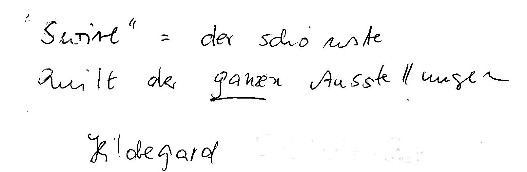 "Swirl" = der schönste
Quilt der ganzen Ausstellungen
Hildegard